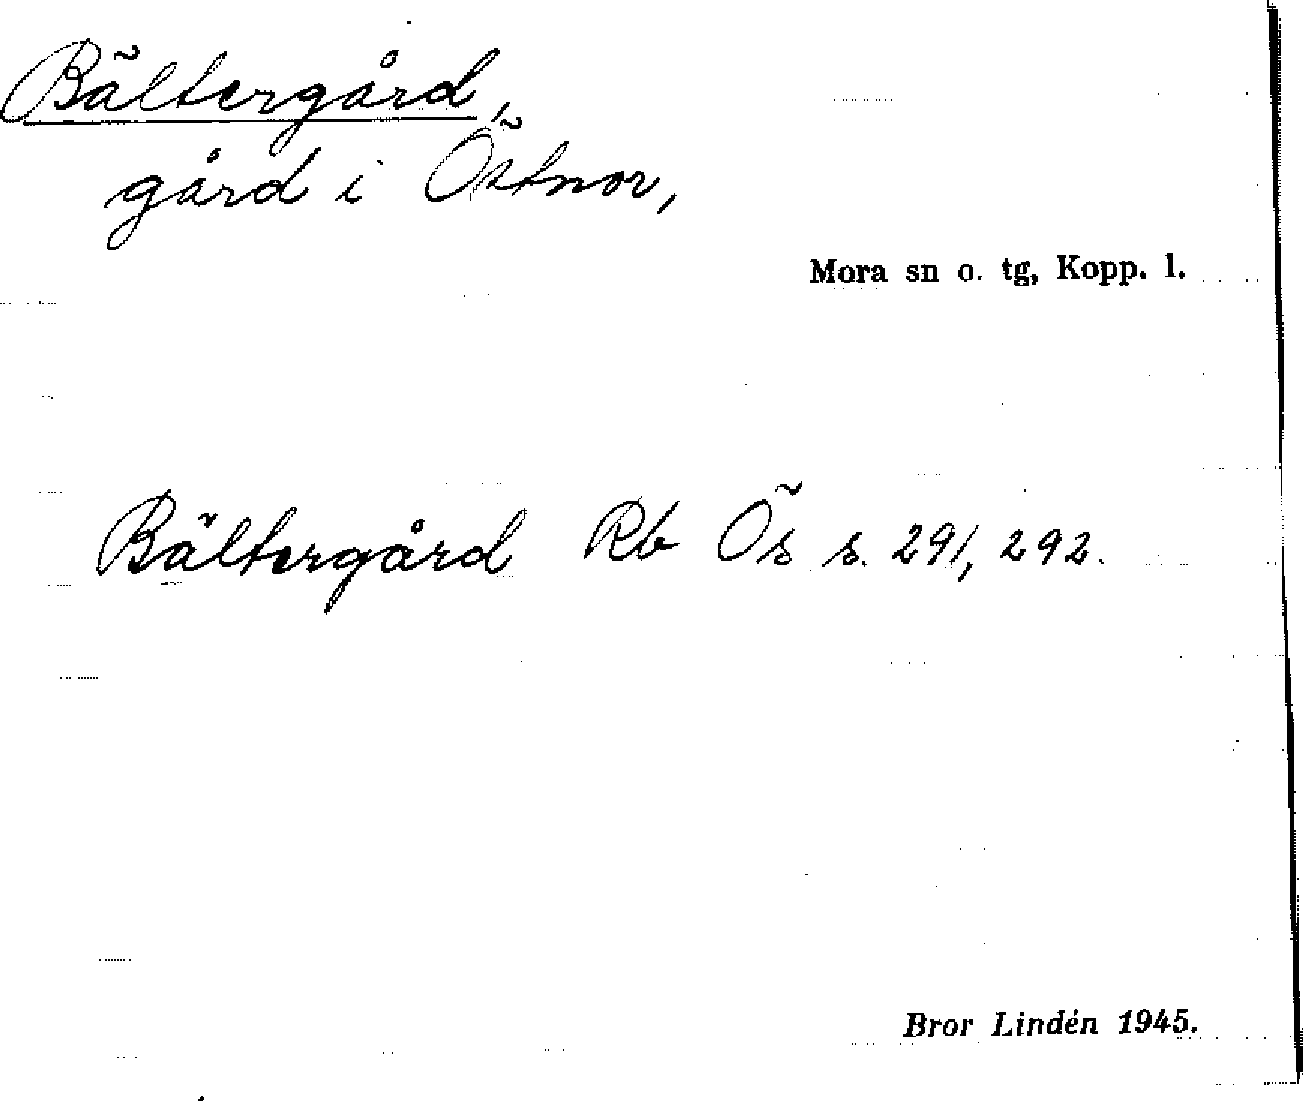 Bältergård,
gård i Östnor,
Mora sn o. tg, Kopp. l.
Bältergård Rb Ös s. 291, 292.
Bror Lindén 1945.